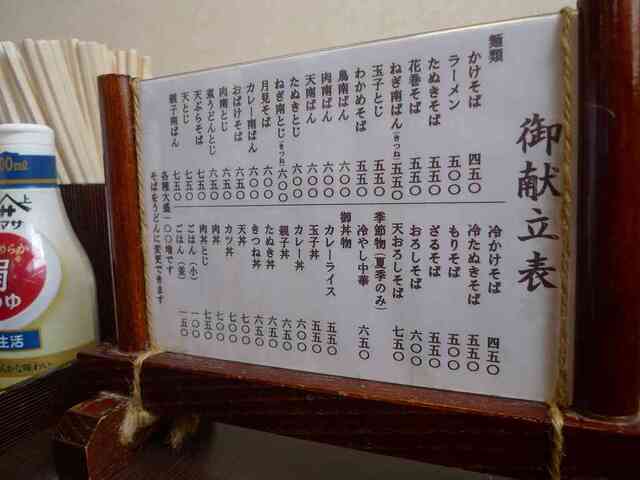 御献立表
麺類
かけそば 四五〇
ラーメン 五〇〇
たぬきそば 五五〇
花巻そば 五五〇
ねぎ南ばん(きつね) 五五〇
玉子とじ 五五〇
わかめそば 五五〇
鳥南ばん 六〇〇
肉南ばん 六〇〇
天南ばん 六〇〇
たぬきとじ 六〇〇
ねぎ南とじ(きつね) 六〇〇
月見そば 六〇〇
カレー南ばん 六五〇
おばけそば 六五〇
肉南とじ 六五〇
煮うどんとじ 七五〇
天ぷらそば 七五〇
天とじ 七五〇
親子南ばん 七五〇
冷かけそば 四五〇
冷たぬきそば 五五〇
もりそば 五〇〇
ざるそば 五五〇
おろしそば 六〇〇
天おろしそば 七五〇
季節物(夏季のみ)
冷やし中華 六五〇
御丼物
カレーライス 五五〇
玉子丼 五五〇
カレー丼 六〇〇
親子丼 六五〇
たぬき丼 六五〇
きつね丼 六五〇
天丼 七〇〇
カツ丼 七〇〇
肉丼 七〇〇
肉丼とじ 七五〇
ごはん(小) 一〇〇
ごはん(並) 一五〇
各種大盛一〇〇増です
そばをうどんに変更できます
00ml
ヤマサ
絹
つゆ
生活